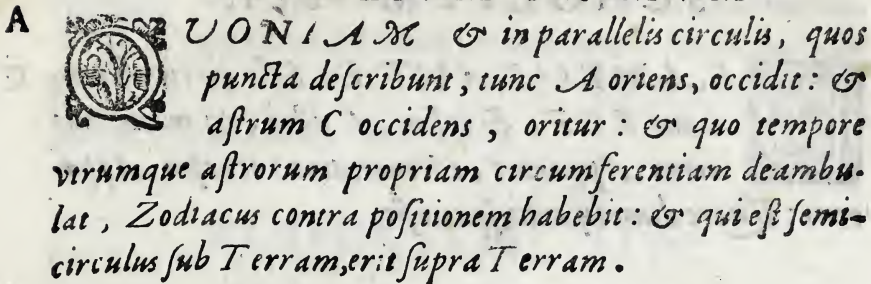 A
QUONIAM & in parallelis circulis, quos
puncta deſcribunt, tunc A oriens, occidit: &
aſtrum C occidens, oritur: & quo tempore
vtrumque aſtrorum propriam circumferentiam deambu-
lat, Zodiacus contra poſitionem habebit: & qui eſt ſemi-
circulus ſub Terram, erit ſupra Terram.